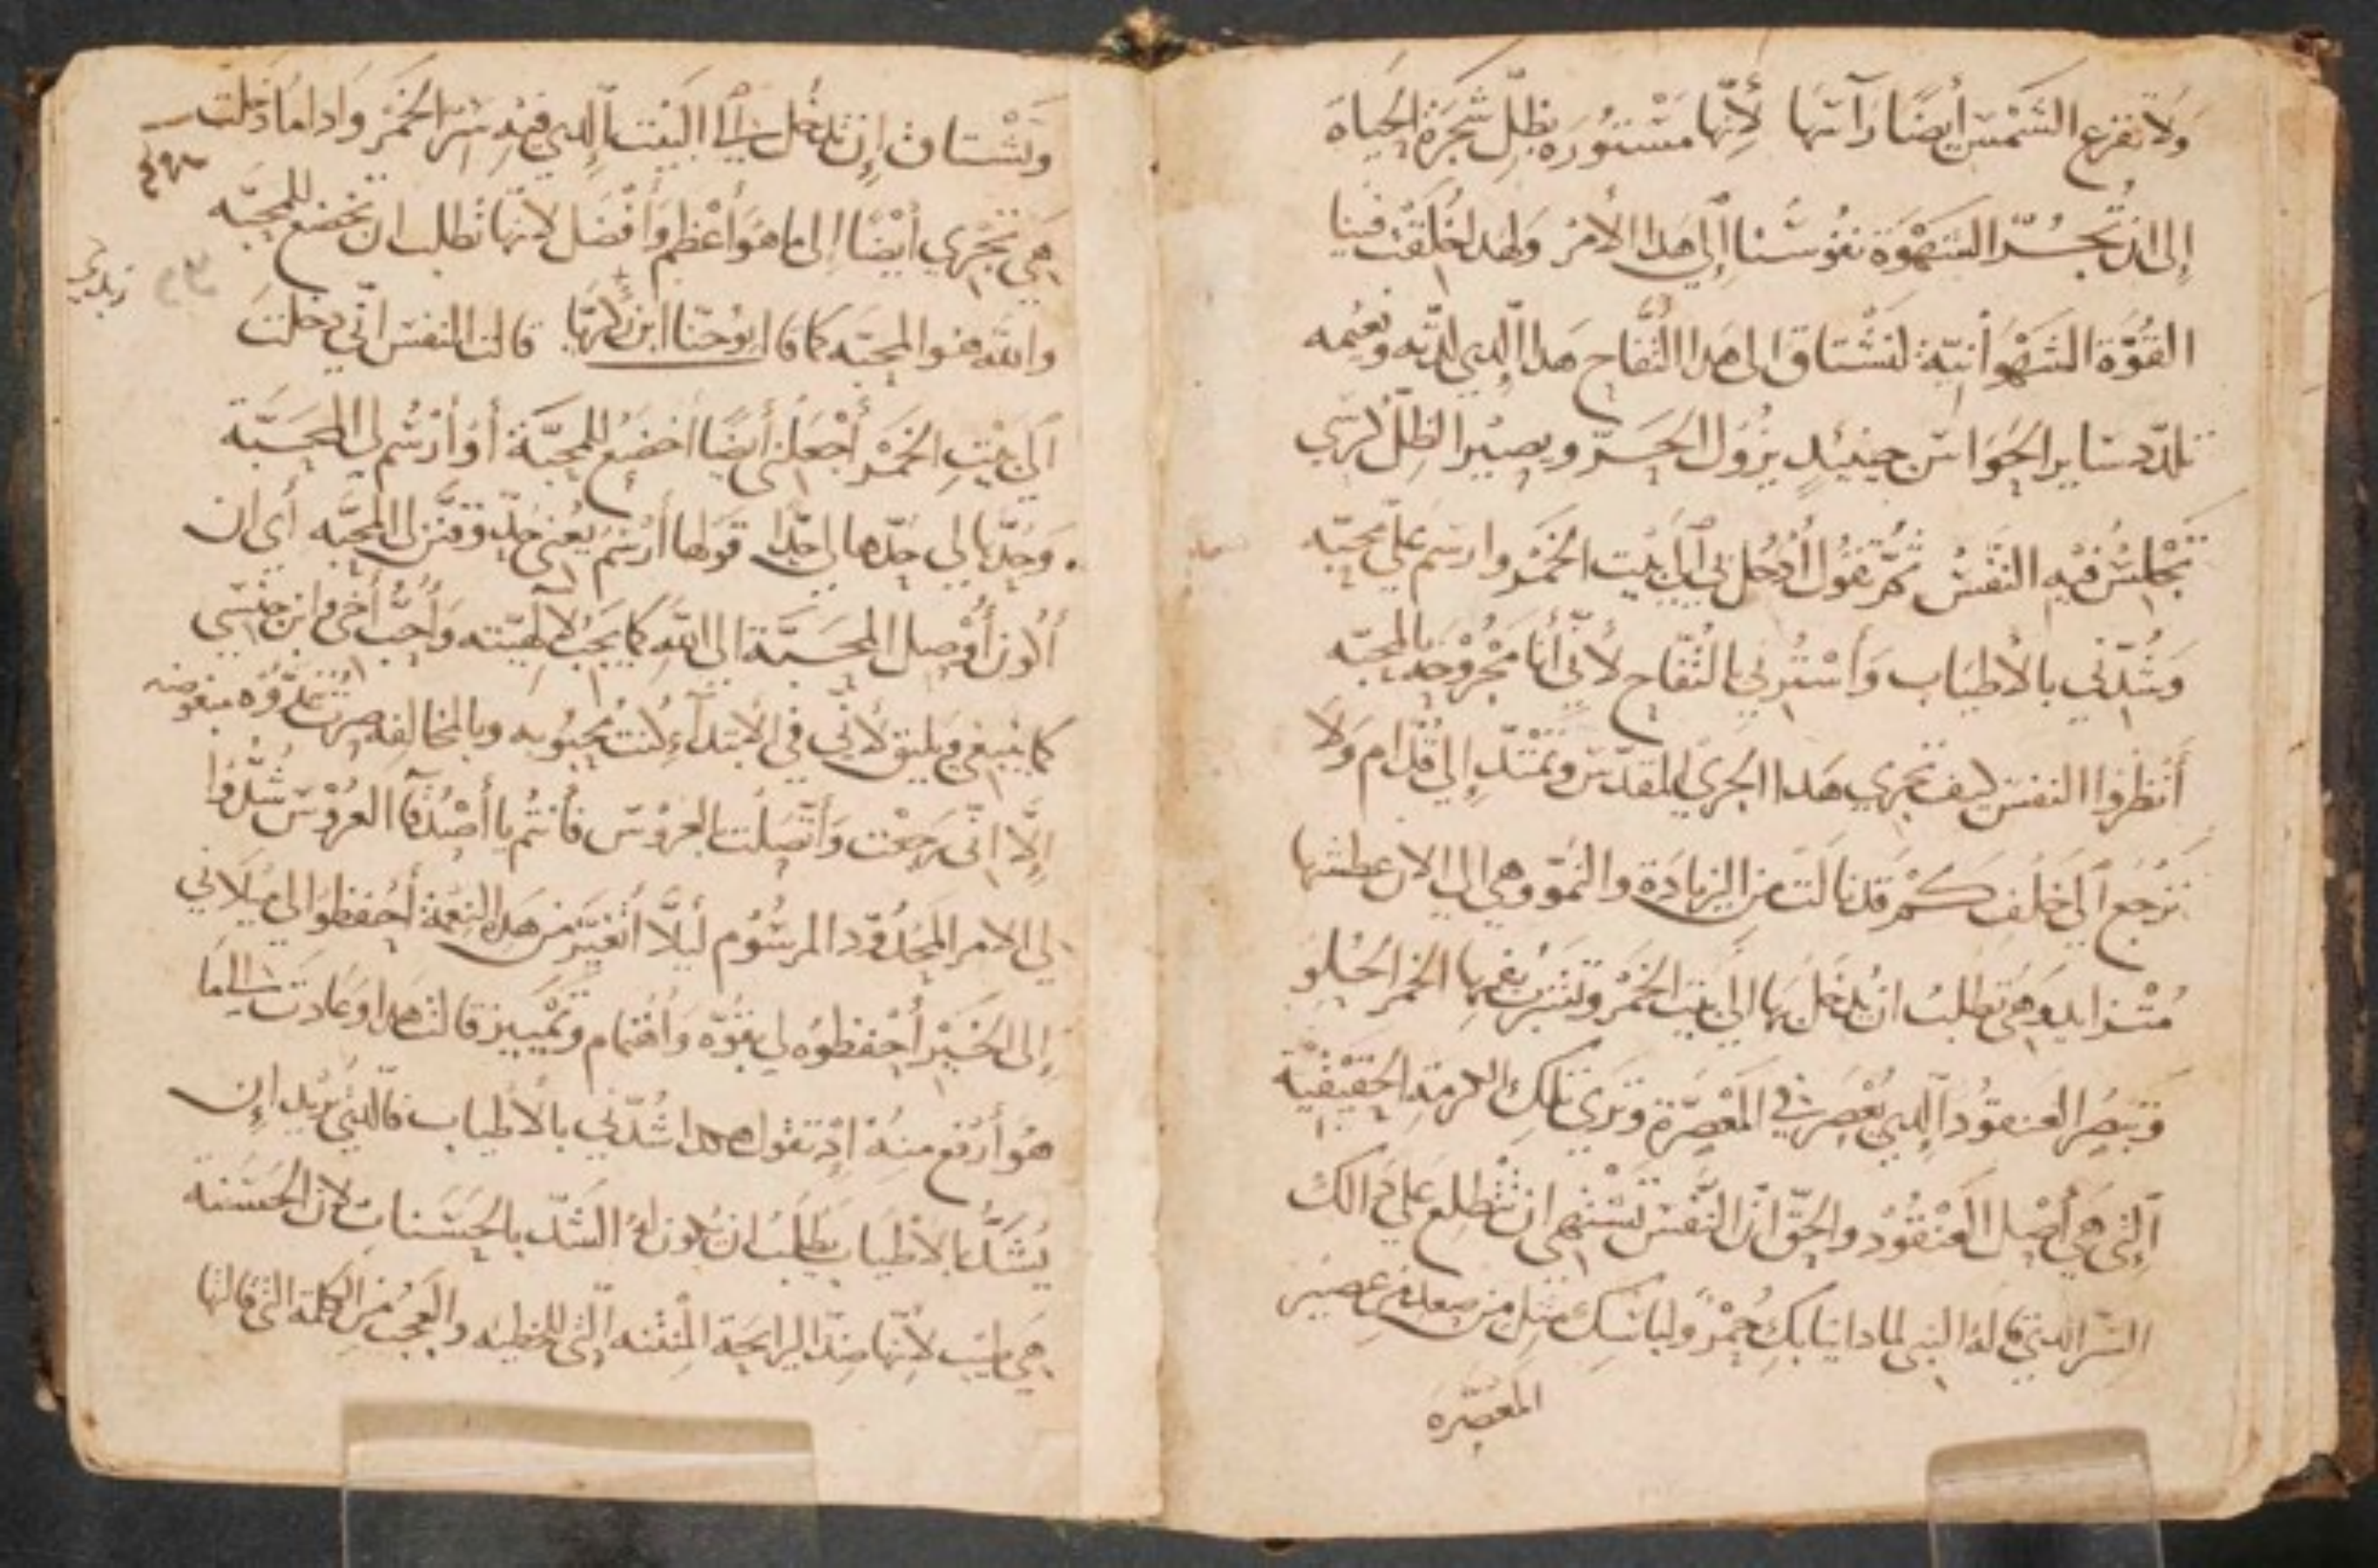 ولا تفزع الشمس أيضًا رآتها لأنها مستوره بظل شجرة الحياه
إلى ان تجسر الشهوة نفوسنا إلى هدا الأمر ولهدا خلقت فينا
القوة الشهوانية لنشتاق الى هدا التفاح هدا الدي لدته ونعيمه
تلدد ساير الحواس حينيد يزول الحر ويصير الظل كرسي
تجلس فيه النفس ثم تقول أدخلني إلى بيت الخمر وارسم علي محبه
وشدني بالأطياب وأسترني بالتفاح لأني أنا مجروحه بالمحبه
أنظروا النفس كيف تجري هدا الجري المقدس وتمتد إلى قدام ولا
ترجع إلى خلف كم قد نالت من الزيادة والنمو وهي الى الان عطشها
متزايد وهي تطلب ان يدخل بها الى بيت الخمر وتشرب بفمها الخمر الحلو
وتبصر العنقود الدي يعصر في المعصرة وترى تلك الكرمة الحقيقية
التي هي أصل العنقود والحق ان النفس تشتهي ان تطلع على دالك
السر الدي قاله النبي لمادا تيابك حمر ولباسك مثل من صعد من عصير
المعصره
وتشتاق إن تدخل إلى البيت الدي فيه سر الخمر وادا ما دخلت
هي تجري أيضًا إلى ما هو أعظم وأفضل لانها تطلب ان تخضع للمحبه
والله هو المحبه كما قال يوحنا ابن زكريا قالت النفس اني دخلت
الى بيت الخمر أجعلني أيضًا أخضع للمحبة أو أرسم لي المحبة
وحدها لي حدها لي حدا قولها أرسم يعني حد وقنن لي المحبه أي ان
أكون أوصل المحبة الى الله كما يجب لإلهيته وأحب أخي وابن جنسي
كما ينبغي ويليق لأني في الابتدآء كنت محبوبه وبالمخالفه صرت عدوه مبغوضه
إلا اني رجعت وأتصلت بالعروس فأنتم يا أصدقآ العروس شدوا
لي الامر المحدود المرسوم ليلا أتغير من هده النعمة أحفظوا لي ميلاني
إلى الخير أحفظوه لي بقوه وأهتمام وتمييز قالت هدا وعادت إلى ما
هو أرفع منه إد تقول هكدا شدني بالأطياب فالدي يريد إن
يشد بالأطياب يطلب ان يكون له الشد بالحسنات لان الحسنة
هي طيب لأنها ضد الرايحة المنتنه التي للخطيه والعجب من الكلمة التي قالتها